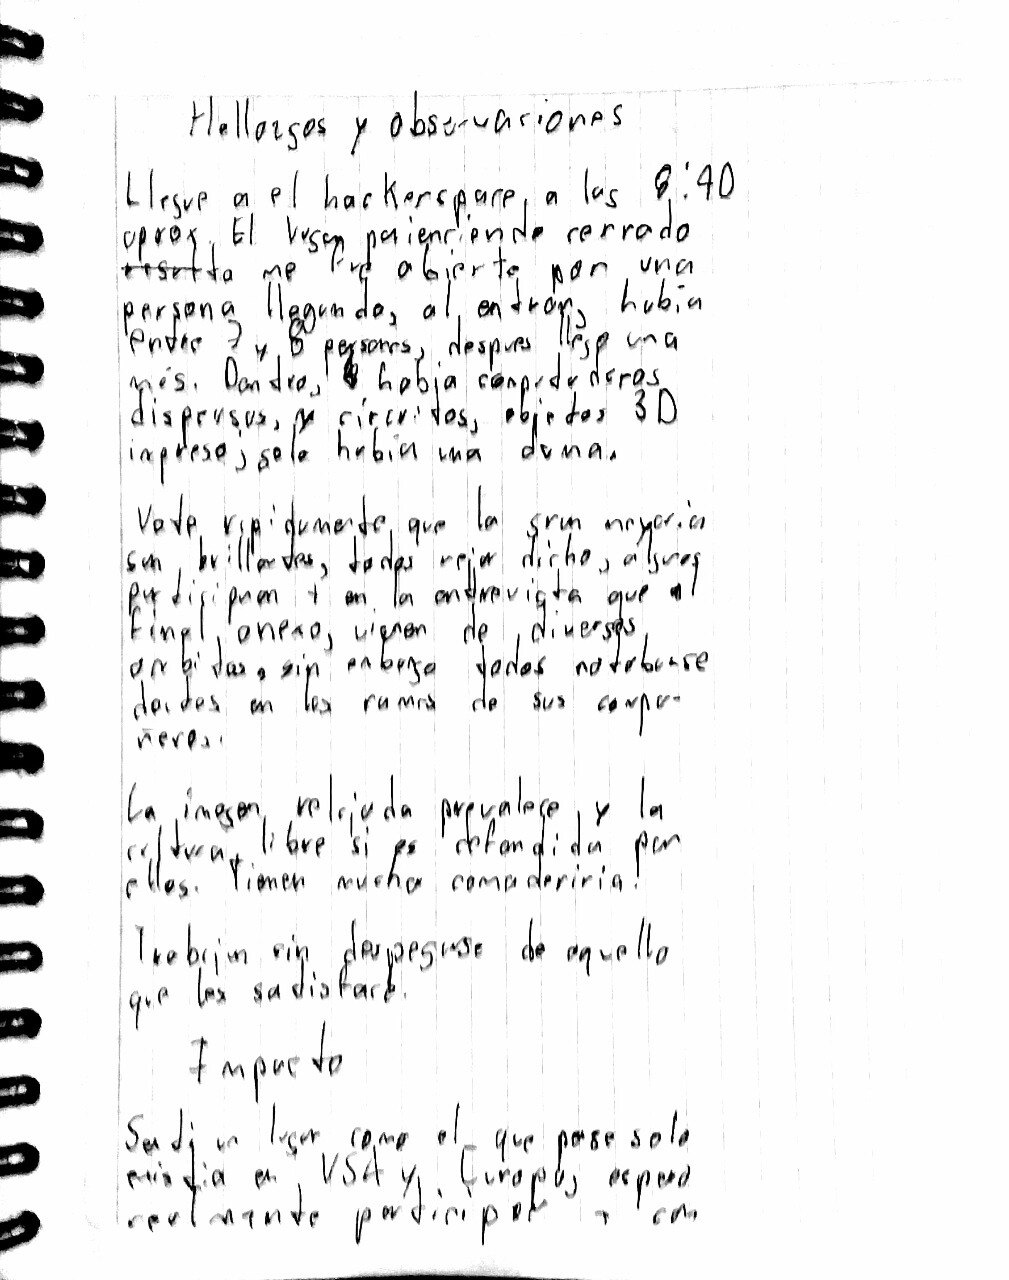 Hallazgos y observaciones
Llegue a el hackerspace, a las 8:40
aprox. El lugar cerrado
me fue abierto por una
persona llegando, al entrar, habia
entre 7 y 8 personas, despues llego una
más. Dentro, habia computadoras
dispersas, y circuitos, objetos 3D
impreso; solo habia una dama.
Note rapidamente que la gran mayoria
son brillantes, todos mejor dicho, algunos
participaron + en la entrevista que al
final anexo, vienen de diversos
ambitos, sin embargo todos
en las ramas de sus compa-
ñeros.
La imagen relajada prevalece, y la
cultura libre si es defendida por
ellos. Tienen mucha camaderiria!
Trabajan sin despegarse de aquello
que les satisface.
Impacto
Senti un lugar como el que pense solo
existia en USA y Europa, espero
realmente participar + con